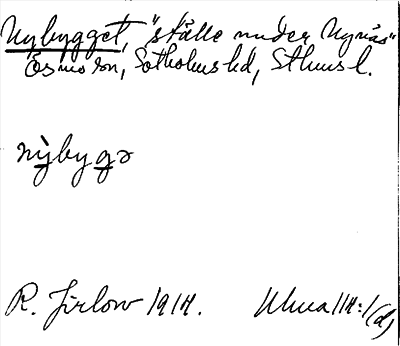 Nybygget, "ställe under Nynäs"
Ösmo sn, Sotholms hd, Sthms l.
nỳbygə
R. Jirlow 1914.